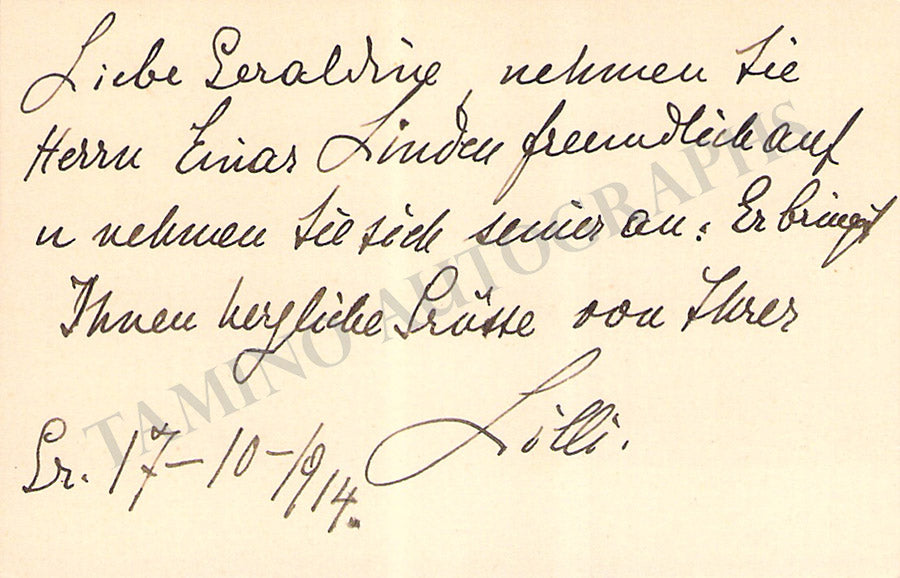 Liebe Geraldine, nehmen Sie
Herrn Einar Linden freundlich auf
u nehmen Sie sich seiner an: Er bringt
Ihnen herzliche Grüsse von Ihrer
Lilli.
Gr. 17-10-1914.
TAMINO AUTOGRAPHS